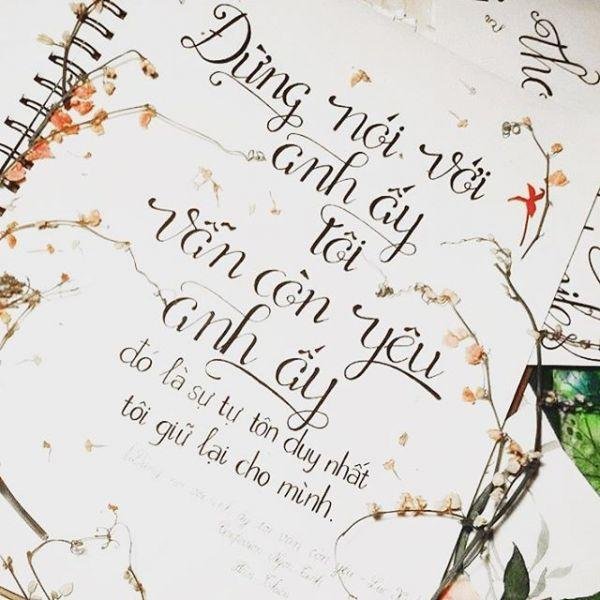 Đừng nói với
anh ấy
tôi
vẫn còn yêu
anh ấy
đó là sự tự tôn duy nhất
tôi giữ lại cho mình.
thơ